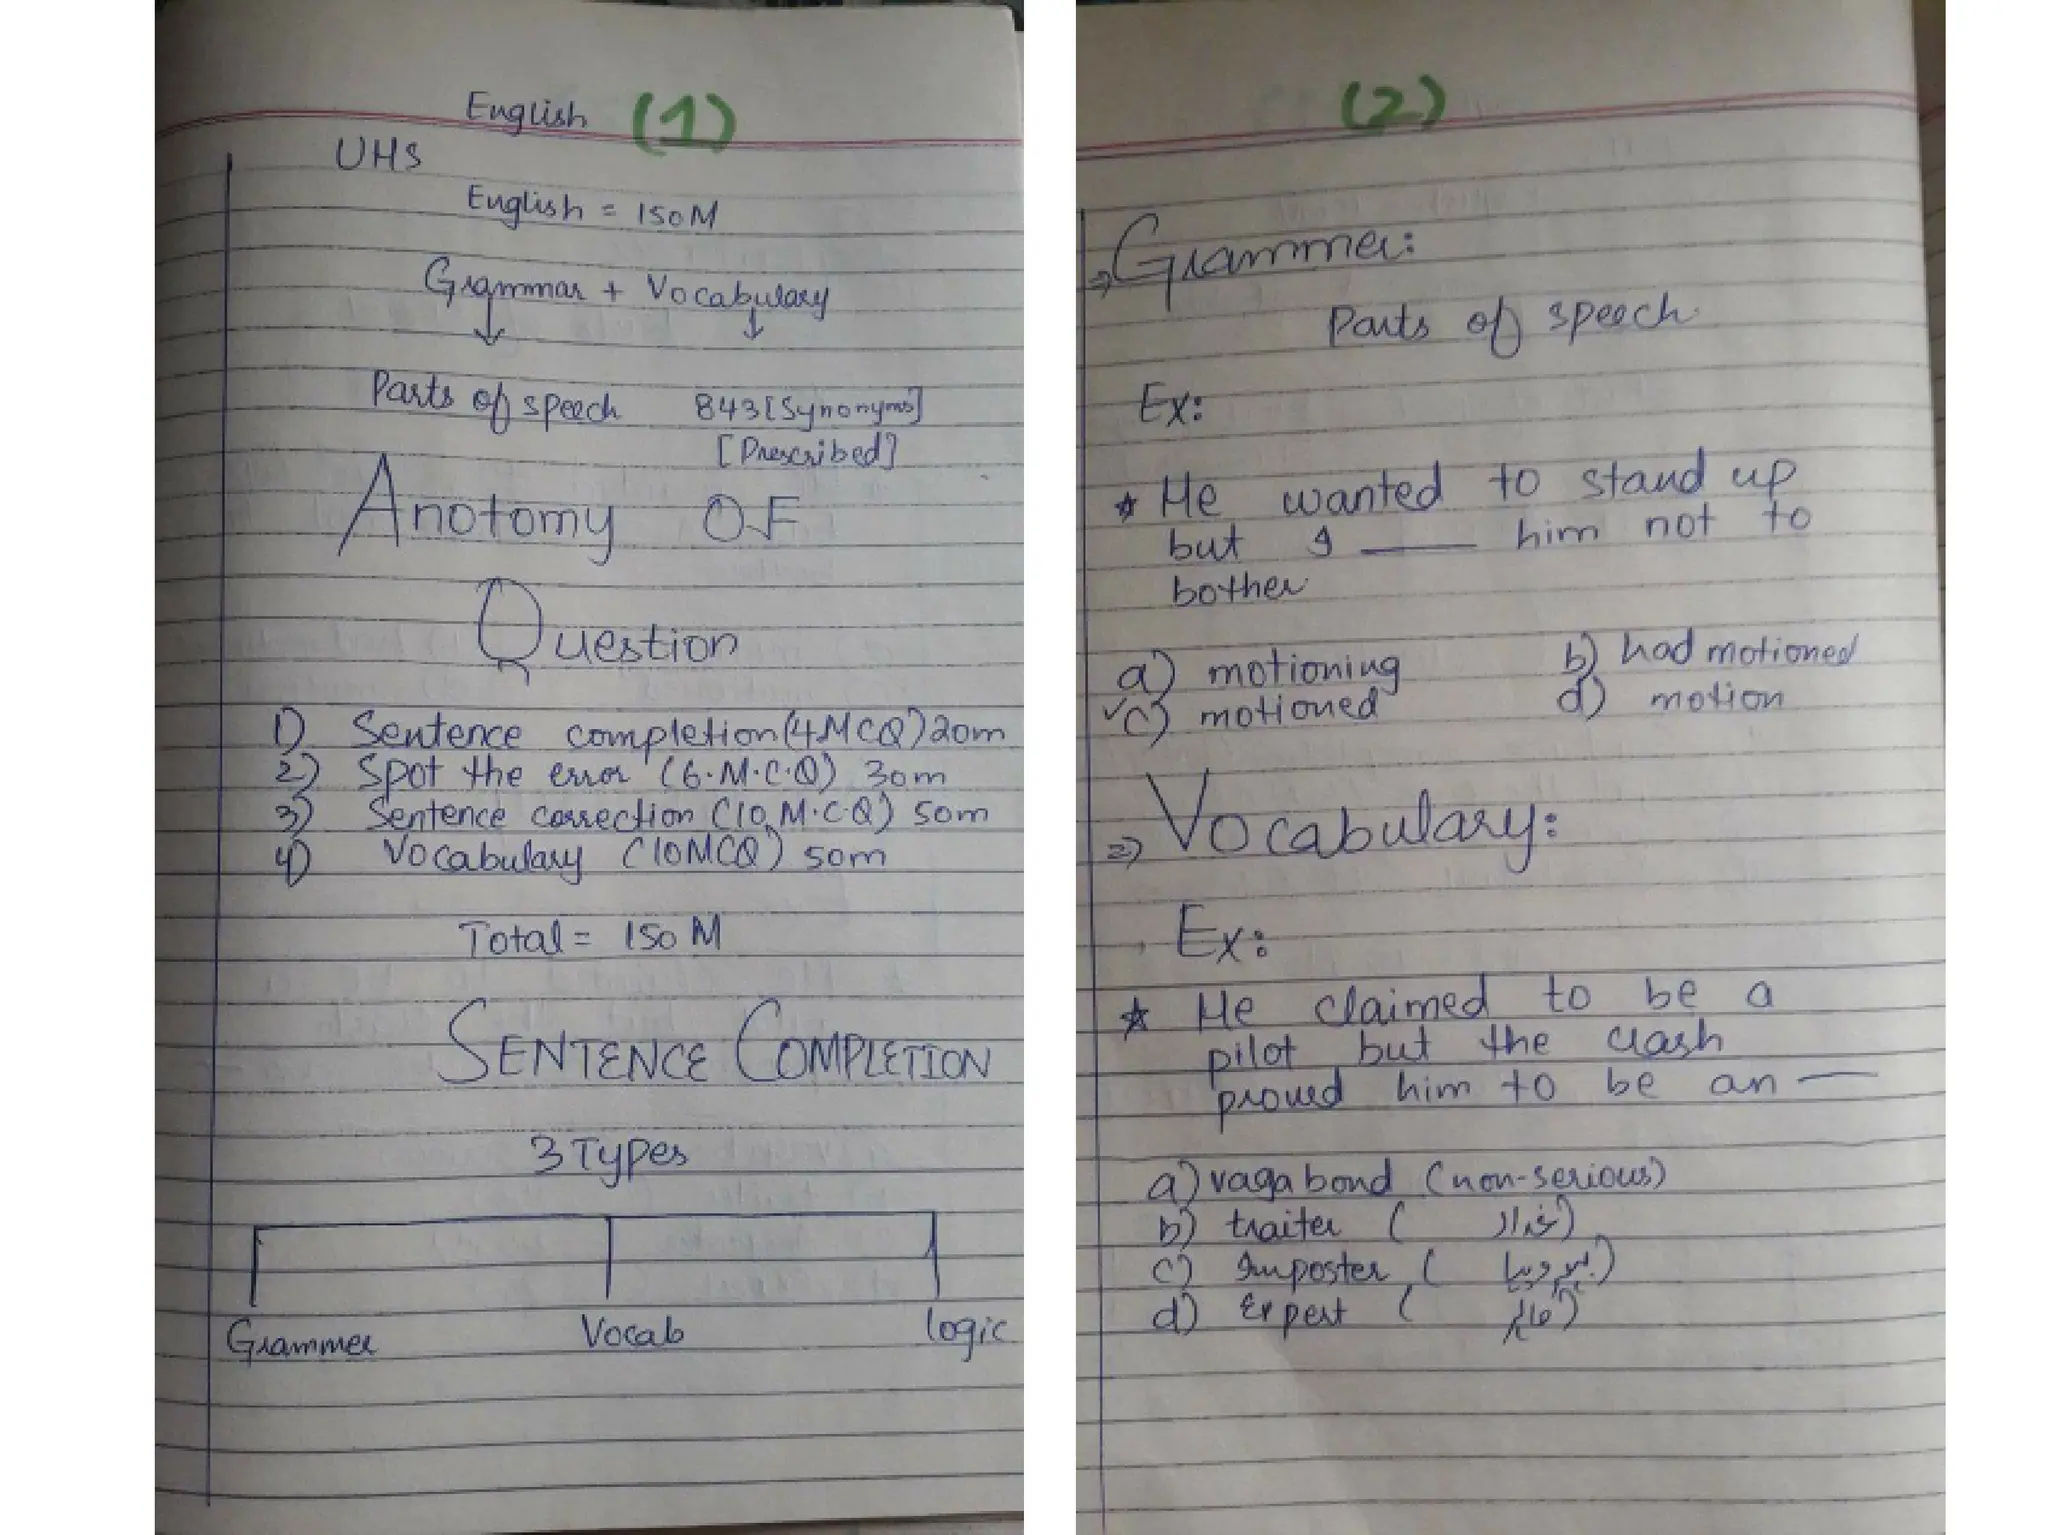 English (1)
UHS
English = 150M
Grammar + Vocabulary
Parts of speech 843 [Synonyms]
[Prescribed]
Anotomy OF
Question
1) Sentence completion (4MCQ) 20m
2) Spot the error (6.M.C.Q) 30m
3) Sentence correction (10 M.C.Q) 50m
4) Vocabulary (10MCQ) 50m
Total = 150 M
SENTENCE COMPLETION
3 Types
Grammer Vocab logic
(2)
Grammer:
Parts of speech
Ex:
* He wanted to stand up
but I ___ him not to
bother
a) motioning b) had motioned
✓c) motioned d) motion
2) Vocabulary:
Ex:
* He claimed to be a
pilot but the crash
proved him to be an —
a) vagabond (non-serious)
b) traiter ( غدار)
c) Imposter (
d) Expert ( ماہر)